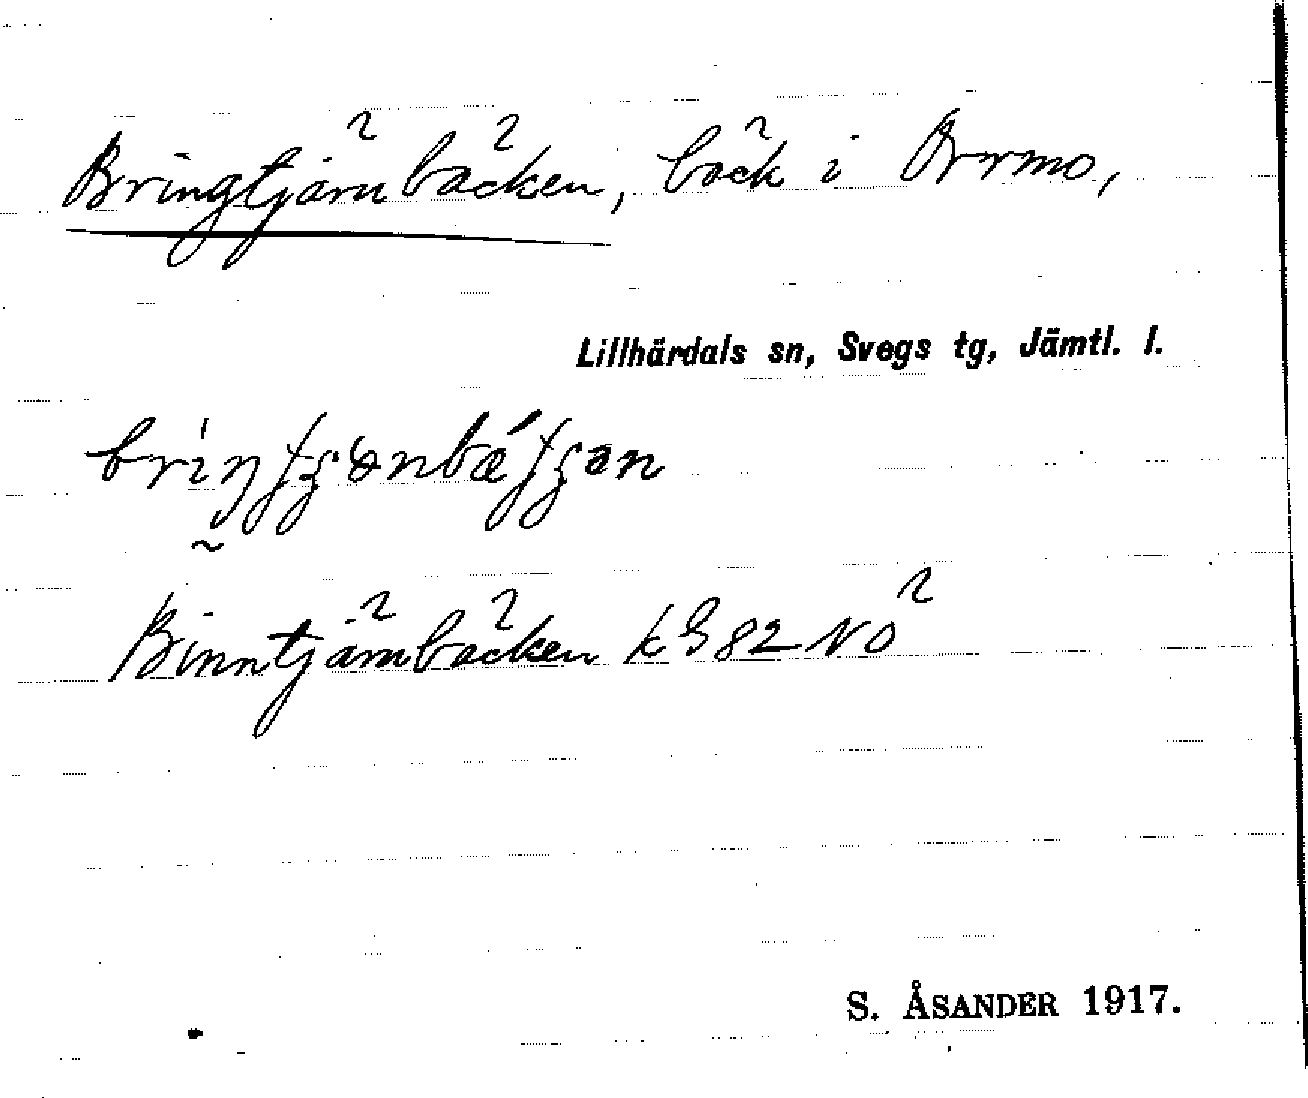 Bringtjärnbäcken, bäck i Orrmo,
Lillhärdals sn, Svegs tg, Jämtl. l.
Binntjärnbäcken kG 82 NO
S. ÅSANDER 1917.